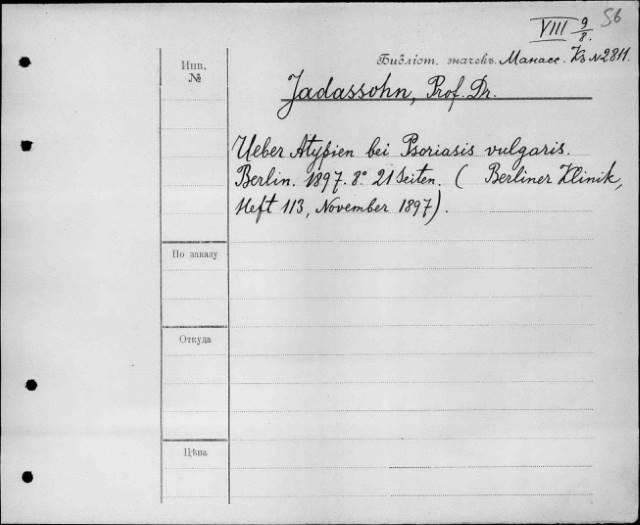 VIII 9/8. 56
Инв. №
Библіот. значекъ. Манасс. Кз №2811.
Jadassohn, Prof. Dr.
Ueber Atypien bei Psoriasis vulgaris.
Berlin. 1897. 8° 21 Seiten. ( Berliner Klinik,
Heft 113, November 1897).
По заказу
Откуда
Цѣна